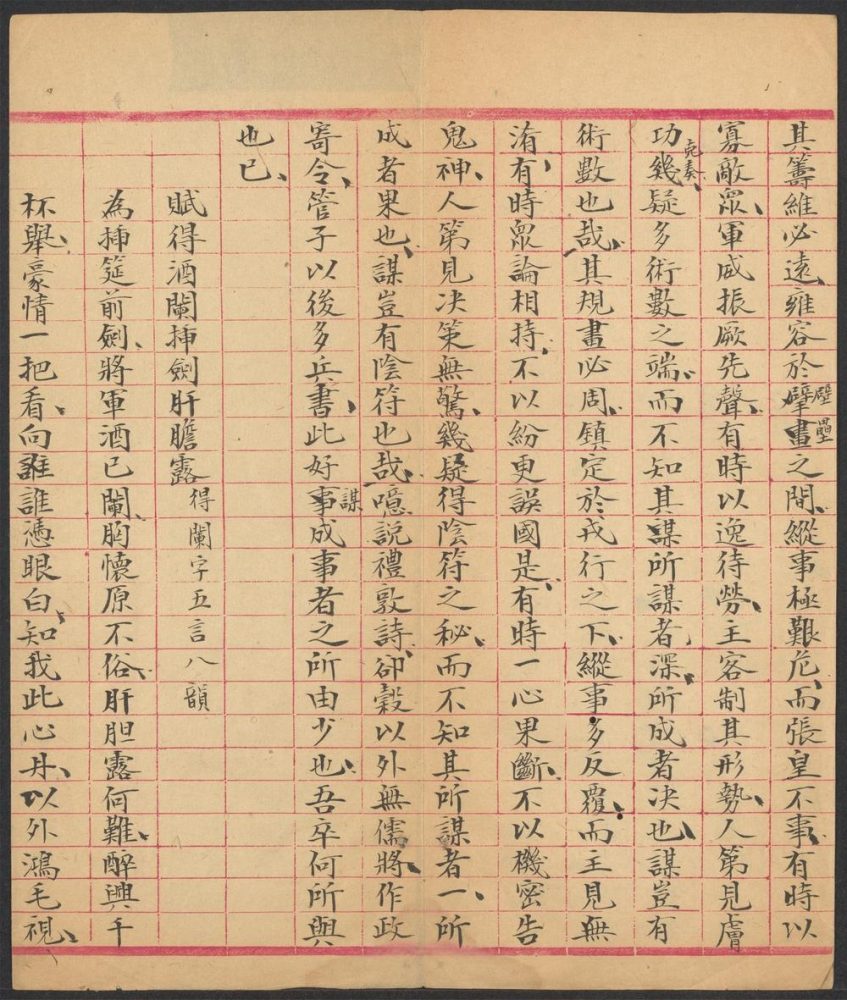 其籌維必遠、雍容於擘畫壁壘之間、縱事極艱危、而張皇不事、有時以
寡敵眾、軍威振厥先聲、有時以逸待勞、主客制其形勢、人第見膚
功克奏、幾疑多術數之端、而不知其謀所謀者深、所成者决也、謀豈有
術數也哉、其規畫必周、鎮定於戎行之下、縱事多反覆、而主見無
淆、有時眾論相持、不以紛更誤國是、有時一心果斷、不以機密告
鬼神、人第見决策無驚、幾疑得陰符之秘、而不知其所謀者一、所
成者果也、謀豈有陰符也哉、噫説禮敦詩、卻縠以外無儒將、作政
寄令、管子以後多兵書、此好事謀成事者之所由少也、吾卒何所與
也已、
賦得酒闌揷劍肝膽露得闌字五言八韻
為揷筵前劍、將軍酒已闌、胸懷原不俗、肝胆露何難、醉興千
杯舉、豪情一把看、向誰誰憑眼白、知我此心丹、以外鴻毛視、